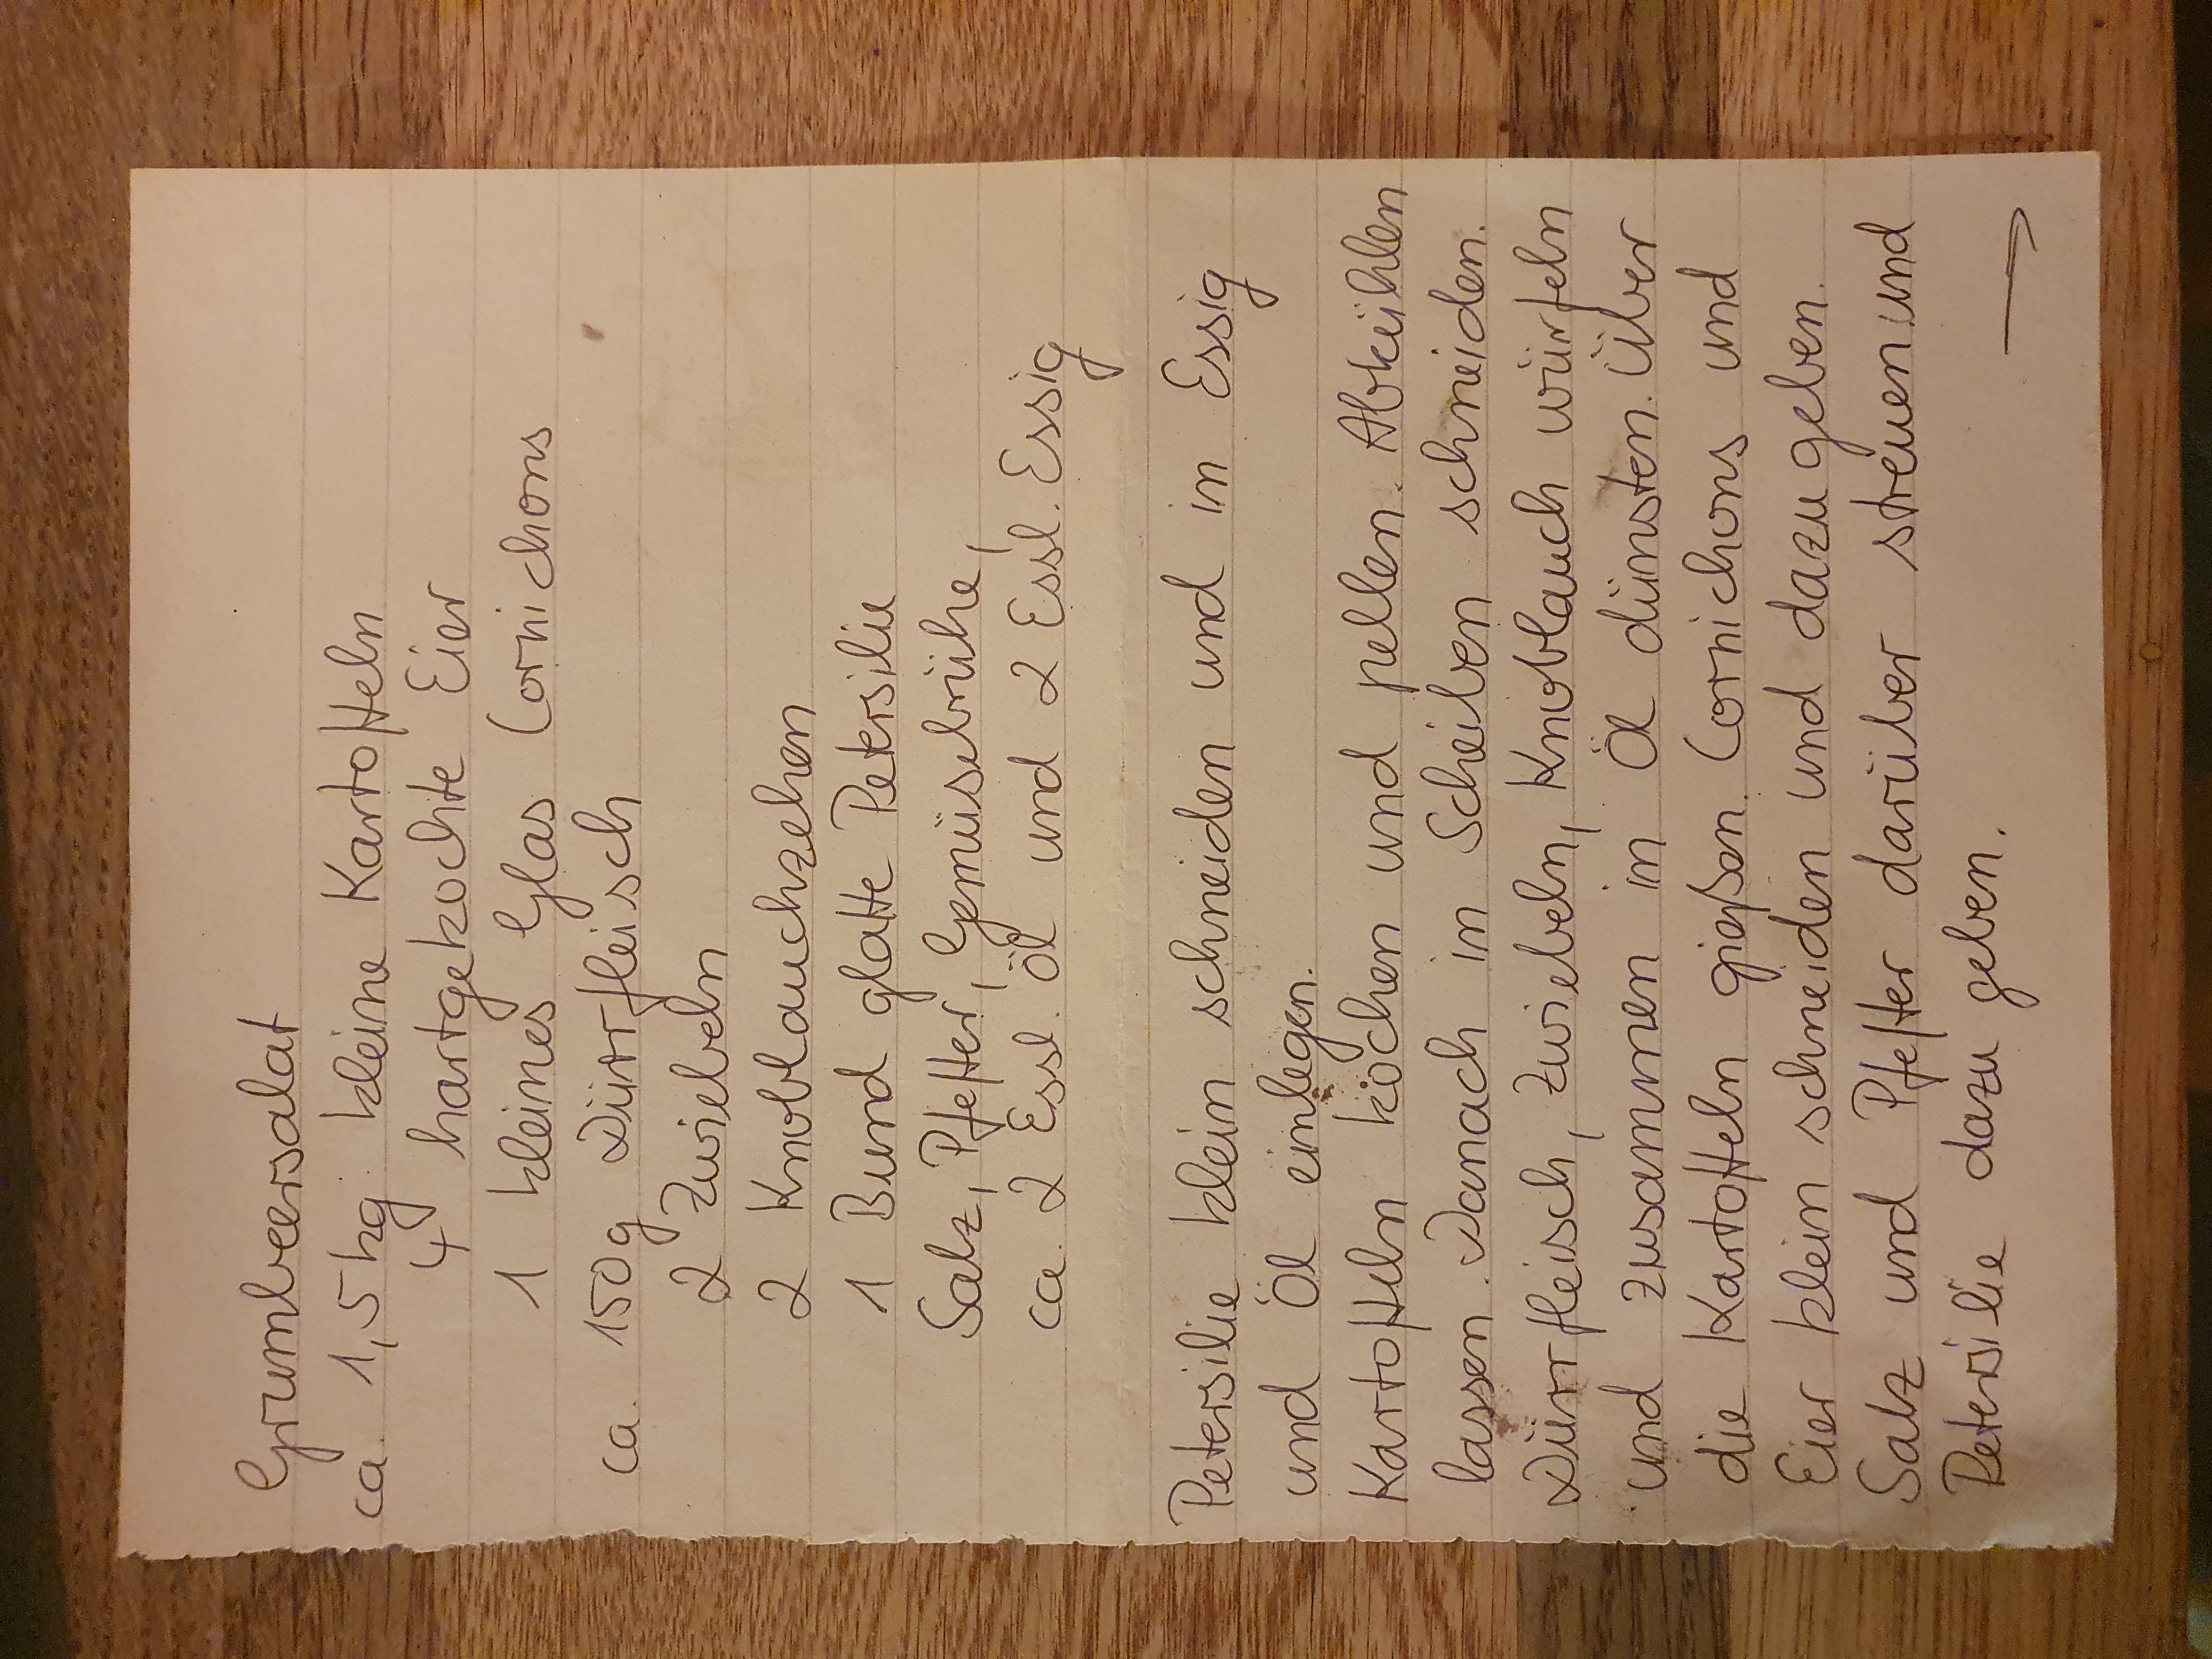 Grumbeersalat
ca. 1,5 kg kleine Kartoffeln
4 hartgekochte Eier
1 kleines Glas Cornichons
ca. 150g Dürrfleisch
2 Zwiebeln
2 Knoblauchzehen
1 Bund glatte Petersilie
Salz, Pfeffer, Gemüsebrühe,
ca. 2 Essl. Öl und 2 Essl. Essig
Petersilie klein schneiden und in Essig
und Öl einlegen.
Kartoffeln kochen und pellen. Abkühlen
lassen. Danach in Scheiben schneiden.
Dürrfleisch, Zwiebeln, Knoblauch würfeln
und zusammen in Öl dünsten. Über
die Kartoffeln gießen. Cornichons und
Eier klein schneiden und dazu geben.
Salz und Pfeffer darüber streuen und
Petersilie dazu geben.